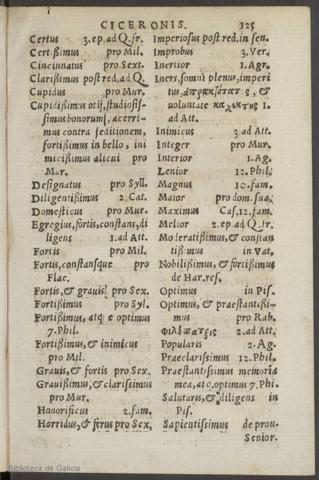 CICERONIS. 125
Certus 3. ep. ad Q. fr.
Certißimus pro Mil.
Cincinnatus pro Sext.
Clarißimus post red. ad Q.
Cupidus pro Mur.
Cupidißimus otij, studiosis-
simus bonorum, acerri-
mus contra seditionem,
fortißimus in bello, ini
micißimus alicui pro
Mur.
Designatus pro Syll.
Diligentißimus 2. Cat.
Domesticus pro Mur.
Egregius, fortis, constans, di
ligens 1. ad Att.
Fortis pro Mil.
Fortis, constansque pro
Flac.
Fortis, & grauis pro Sex.
Fortißimus pro Syl.
Fortißimus, atq; e optimus
7. Phil.
Fortißimus, & inimicus
pro Mil.
Grauis, & fortis pro Sex.
Grauißimus, & clarissimus
pro Mur.
Honorificus 2. fam.
Horridus, & ferus pro Sex.
Imperiosus post red. in sen.
Improbus 3. Ver.
Inertior 1. Agr.
Iners, somni plenus, imperi
tus, & 
uoluntate 1.
ad Att.
Inimicus 3. ad Att.
Integer pro Mur.
Interior 1. Ag.
Lenior 12. Phil.
Magnus 10. fam.
Maior pro dom. sua.
Maximus Cas. 12. fam.
Melior 2. ep. ad Q. fr.
Moderatißimus, & constan
tißimus in Vat.
Nobilißimus, & fortißimus
de Har. res.
Optimus in Pis.
Optimus, & praestantißi-
mus pro Rab.
Φιλόπατρις 2. ad Att.
Popularis 2. Ag.
Praeclarissimus 12. Phil.
Praestantissimus memoria
mea, atc, optimus 7. Phi.
Salutaris, & diligens in
Pis.
Sapientissimus de prou.
Senior.
Biblioteca de Galicia